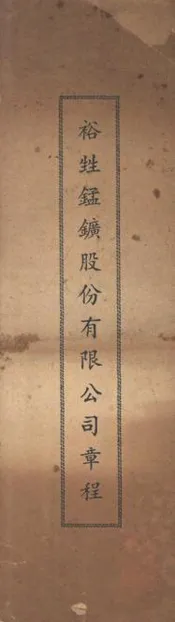 裕甡錳鑛股份有限公司章程